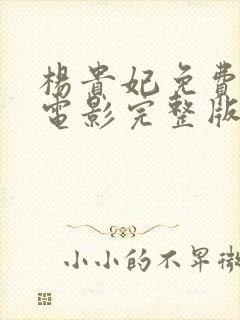 楊貴妃免費
電影完整版
小小的不早微